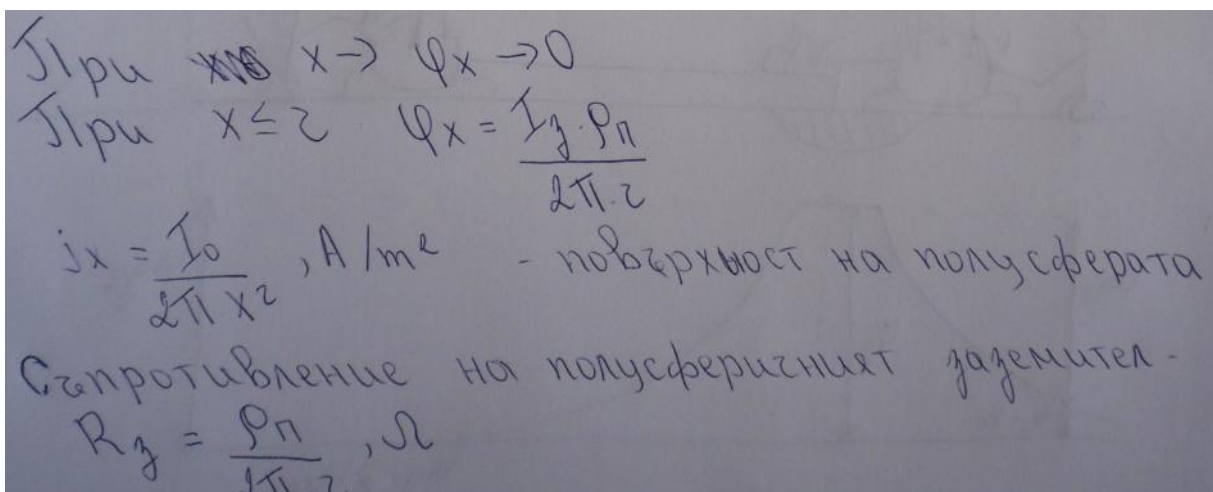 При x → φx → 0
При x ≤ r φx = Iз·ρп / 2π·r
jx = I0 / 2πx², A/m² - повърхност на полусферата
Съпротивление на полусферичният заземител -
Rз = ρп / 2π·r, Ω